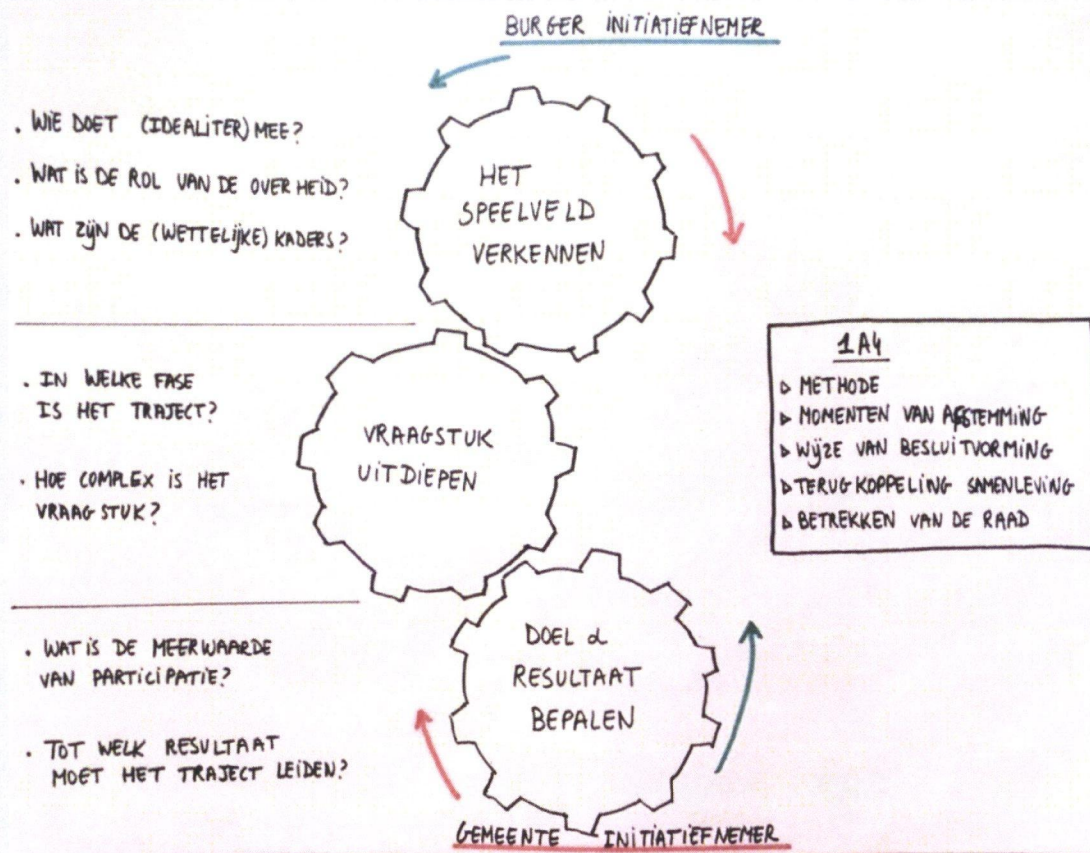 BURGER INITIATIEFNEMER
. WIE DOET (IDEALITER) MEE?
. WAT IS DE ROL VAN DE OVERHEID?
. WAT ZIJN DE (WETTELIJKE) KADERS?
HET
SPEELVELD
VERKENNEN
. IN WELKE FASE
IS HET TRAJECT?
. HOE COMPLEX IS HET
VRAAGSTUK?
VRAAGSTUK
UITDIEPEN
1A4
▷ METHODE
▷ MOMENTEN VAN AFSTEMMING
▷ WIJZE VAN BESLUITVORMING
▷ TERUGKOPPELING SAMENLEVING
▷ BETREKKEN VAN DE RAAD
. WAT IS DE MEERWAARDE
VAN PARTICIPATIE?
. TOT WELK RESULTAAT
MOET HET TRAJECT LEIDEN?
DOEL &
RESULTAAT
BEPALEN
GEMEENTE INITIATIEFNEMER